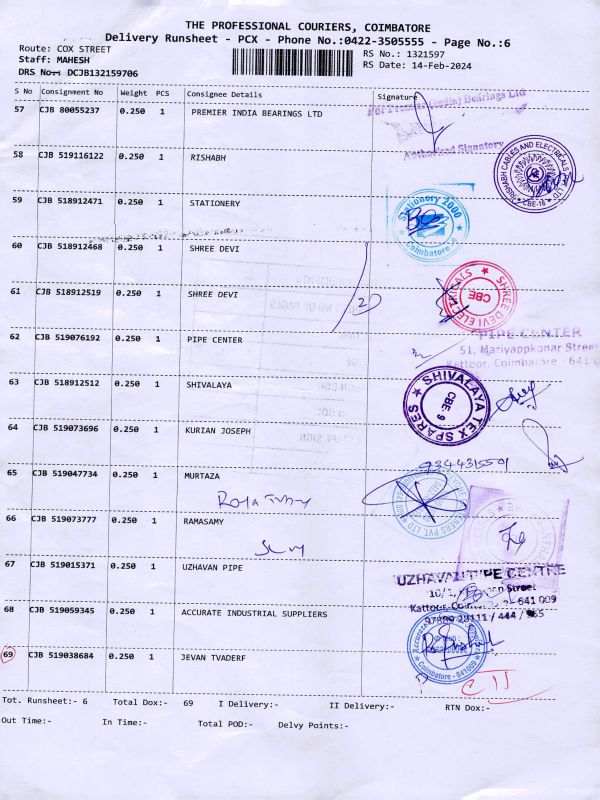 THE PROFESSIONAL COURIERS, COIMBATORE
Delivery Runsheet - PCX - Phone No.:0422-3505555 - Page No.:6
Route: COX STREET RS No.: 1321597
Staff: MAHESH RS Date: 14-Feb-2024
DRS No:- DCJB132159706
S No Consignment No Weight PCS Consignee Details Signature
57 CJB 80055237 0.250 1 PREMIER INDIA BEARINGS LTD
For Premier (India) Bearings Ltd
Authorised Signatory
58 CJB 519116122 0.250 1 RISHABH
RISHABH CABLES AND ELECTRICALS LTD
CBE-18
59 CJB 518912471 0.250 1 STATIONERY
Stationery 2000
Coimbatore
60 CJB 518912468 0.250 1 SHREE DEVI
61 CJB 518912519 0.250 1 SHREE DEVI
20
SHREE DEVI ELECTRICALS
CBE
62 CJB 519076192 0.250 1 PIPE CENTER
PIPE CENTER
51, Mariyappkonar Street
Kattoor, Coimbatore - 641 0
63 CJB 518912512 0.250 1 SHIVALAYA
SHIVALAYA TEX SPARES
CBE 9
64 CJB 519073696 0.250 1 KURIAN JOSEPH
7344315501
65 CJB 519047734 0.250 1 MURTAZA
66 CJB 519073777 0.250 1 RAMASAMY
67 CJB 519015371 0.250 1 UZHAVAN PIPE
UZHAVAN PIPE CENTRE
10/1, Street
Kattoor, 641 009
28111 / 444 /
68 CJB 519059345 0.250 1 ACCURATE INDUSTRIAL SUPPLIERS
Accurate
Coimbatore - 641009
69 CJB 519038684 0.250 1 JEVAN TVADERF
Tot. Runsheet:- 6 Total Dox:- 69 I Delivery:- II Delivery:- RTN Dox:-
Out Time:- In Time:- Total POD:- Delvy Points:-